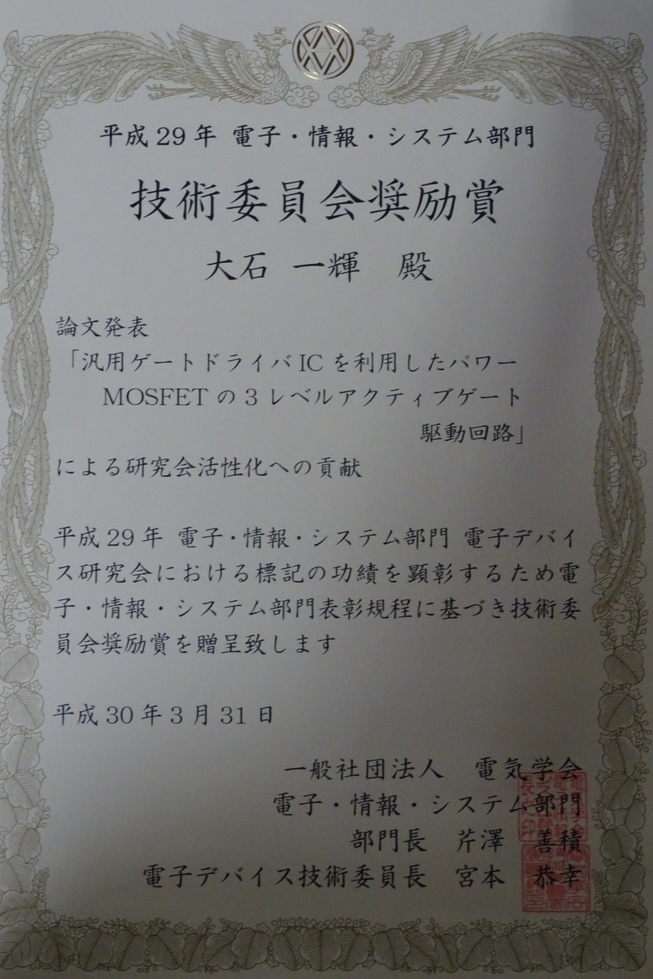 平成29年 電子・情報・システム部門
技術委員会奨励賞
大石 一輝 殿
論文発表
「汎用ゲートドライバICを利用したパワー
MOSFETの3レベルアクティブゲート
駆動回路」
による研究会活性化への貢献
平成29年 電子・情報・システム部門 電子デバイ
ス研究会における標記の功績を顕彰するため電
子・情報・システム部門表彰規程に基づき技術委
員会奨励賞を贈呈致します
平成30年3月31日
一般社団法人 電気学会
電子・情報・システム部門
部門長 芹澤 善積
電子デバイス技術委員長 宮本 恭幸